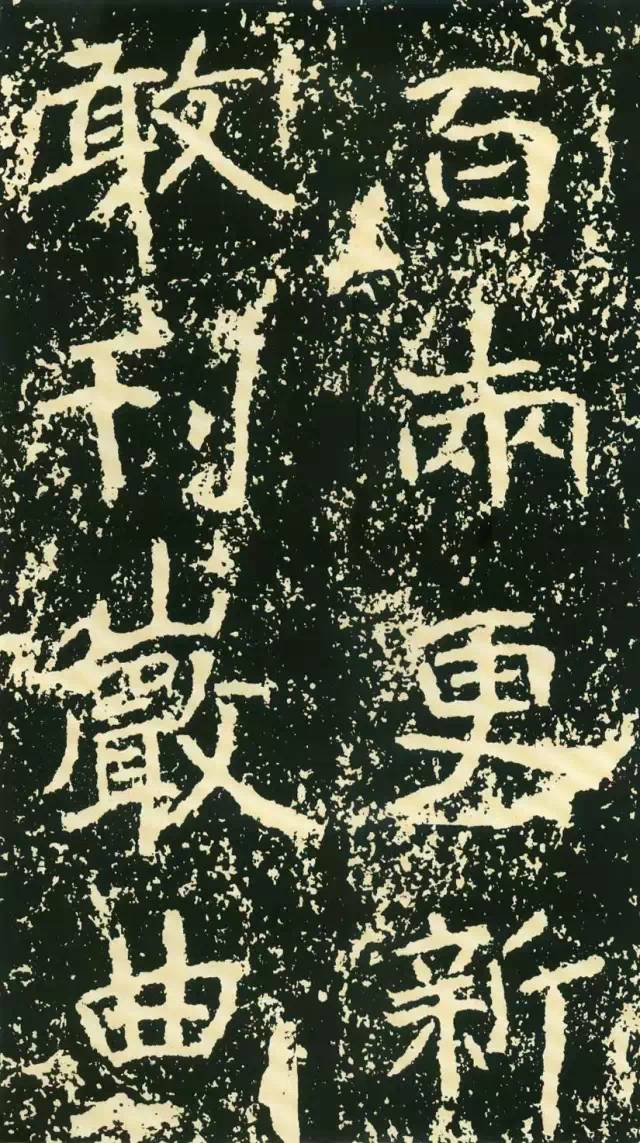 百兩更新
敢刊巖曲